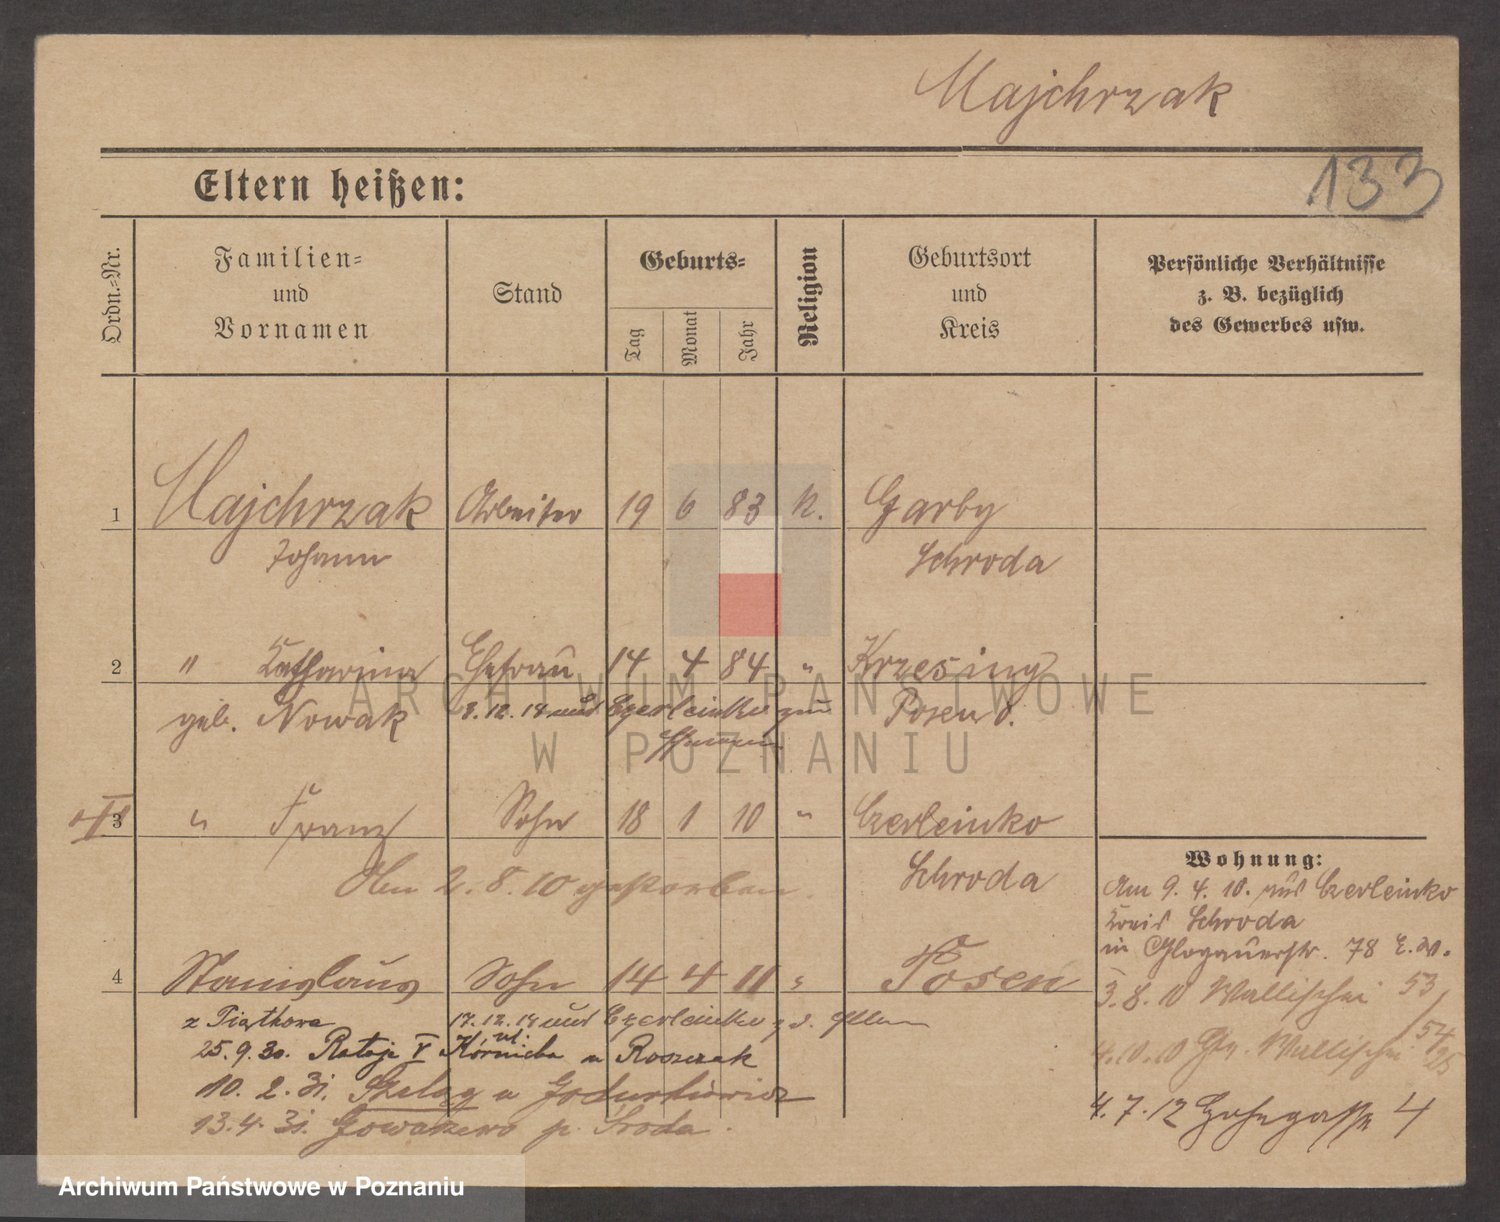 Majchrzak
133
Eltern heißen:
Ordn.-Nr.
Familien-
und
Vornamen
Stand
Geburts-
Tag
Monat
Jahr
Religion
Geburtsort
und
Kreis
Persönliche Verhältnisse
z. B. bezüglich
des Gewerbes usw.
1 Majchrzak Arbeiter 19 6 83 k. Garby
Johann Schroda
2 " Katharina Ehefrau 14 4 84 " Krzesiny
geb. Nowak 8.12.18 Czerleinko Posen O.
3 " Franz Sohn 18 1 10 " Czerleinko
Am 2.8.10 gestorben. Schroda
Wohnung:
Am 9.4.10. aus Czerleinko
Kreis Schroda
in Glogauerstr. 78 E.W.
3.8.10 Wallischei 53/
4.10.10 Wallischei
4.7.12 4
4 Stanislaus Sohn 14 4 11 " Posen
z Piątkowa 17.12.18 Czerleinko
25.9.30. Rataje V Kórnicka u Roszczak
10.2.31. Szeląg u
13.4.31. p. Środa.
ARCHIWUM PAŃSTWOWE
W POZNANIU
Archiwum Państwowe w Poznaniu